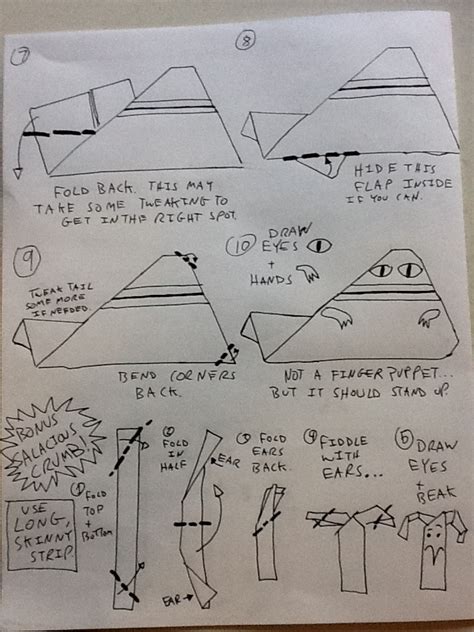 7
FOLD BACK. THIS MAY
TAKE SOME TWEAKING TO
GET IN THE RIGHT SPOT.
8
HIDE THIS
FLAP INSIDE
IF YOU CAN.
9
TWEAK TAIL
SOME MORE
IF NEEDED.
BEND CORNERS
BACK.
10
DRAW
EYES
+
HANDS
NOT A FINGER PUPPET...
BUT IT SHOULD STAND UP.
BONUS
SALACIOUS
CRUMB!
USE
LONG,
SKINNY
STRIP.
1 FOLD
TOP
+
BOTTOM
FOLD
IN
HALF
EAR
EAR
FOLD
EARS
BACK.
4 FIDDLE
WITH
EARS...
5 DRAW
EYES
+
BEAK